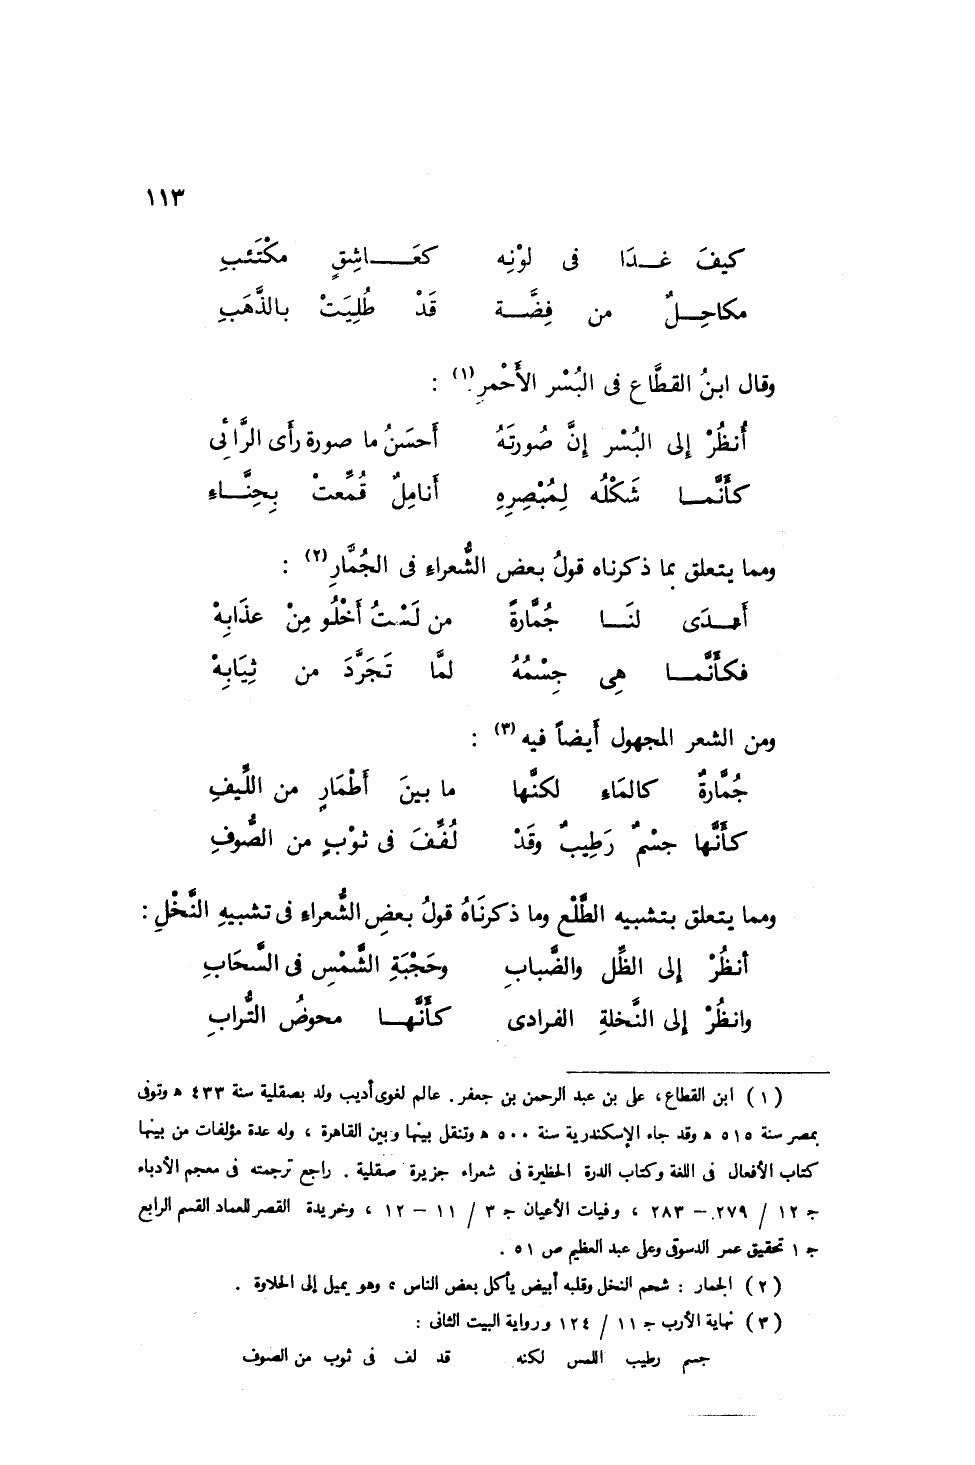 ١١٣
كيفَ غــدَا فى لوْنِه كعَــــاشِقٍ مكْتَئبِ
مكاحِــلٌ من فِضَّــة قَدْ طُلِيَتْ بالذَّهَبِ
وقال ابنُ القطَّاع فى البُسْر الأَحْمرِ(١) :
أُنظُرْ إلى البُسْر إنَّ صُورتَهُ أَحسَنُ ما صورة رأَى الرَّائى
كأَنَّمــا شَكْلُه لِمُبْصِرِهِ أَنامِلٌ قُمِّعتْ بِحِنَّــاءِ
ومما يتعلق بما ذكرناه قولُ بعض الشُّعراءِ فى الجُمَّارِ(٢) :
أَهــدَى لنَــا جُمَّارةً من لَسْتُ أَخْلُو مِنْ عذَابِهْ
فكأَنَّمــا هِى جِسْمُهُ لمَّا تَجَرَّدَ من ثِيَابِهْ
ومن الشعر المجهول أَيضاً فيه(٣) :
جُمَّارةٌ كالمَاءِ لكنَّها ما بينَ أَطْمَارٍ من اللِّيفِ
كأَنَّها جسْمٌ رَطِيبٌ وقَدْ لُفِّفَ فى ثوْبٍ من الصُّوفِ
ومما يتعلق بتشبيه الطَّلْع وما ذكرنَاهُ قولُ بعضِ الشُّعراءِ فى تشبيهِ النَّخْلِ :
أنظُرْ إلى الظِّل والضَّبابِ وحَجْبَةِ الشَّمْسِ فى السَّحَابِ
وانظُرْ إلى النَّخلةِ الفرادى كأَنَّهــا محوضُ التُّرابِ
(١) ابن القطاع، على بن عبد الرحمن بن جعفر. عالم لغوى أديب ولد بصقلية سنة ٤٣٣ ه وتوفى
بمصر سنة ٥١٥ ه وقد جاء الإسكندرية سنة ٥٠٠ ه وتنقل بينها وبين القاهرة ، وله عدة مؤلفات من بينها
كتاب الأفعال فى اللغة وكتاب الدرة الخطيرة فى شعراء جزيرة صقلية . راجع ترجمته فى معجم الأدباء
ج ١٢ / ٢٧٩ – ٢٨٣ ، وفيات الأعيان ج ٣ / ١١ – ١٢ ، وخريدة القصر للعماد القسم الرابع
ج ١ تحقيق عمر الدسوقى وعلى عبد العظيم ص ٥١ .
(٢) الجمار : شحم النخل وقلبه أبيض يأكل بعض الناس ، وهو يميل إلى الحلاوة .
(٣) نهاية الأرب ج ١١ / ١٢٤ ورواية البيت الثانى :
جسم رطيب اللمس لكنه قد لف فى ثوب من الصوف